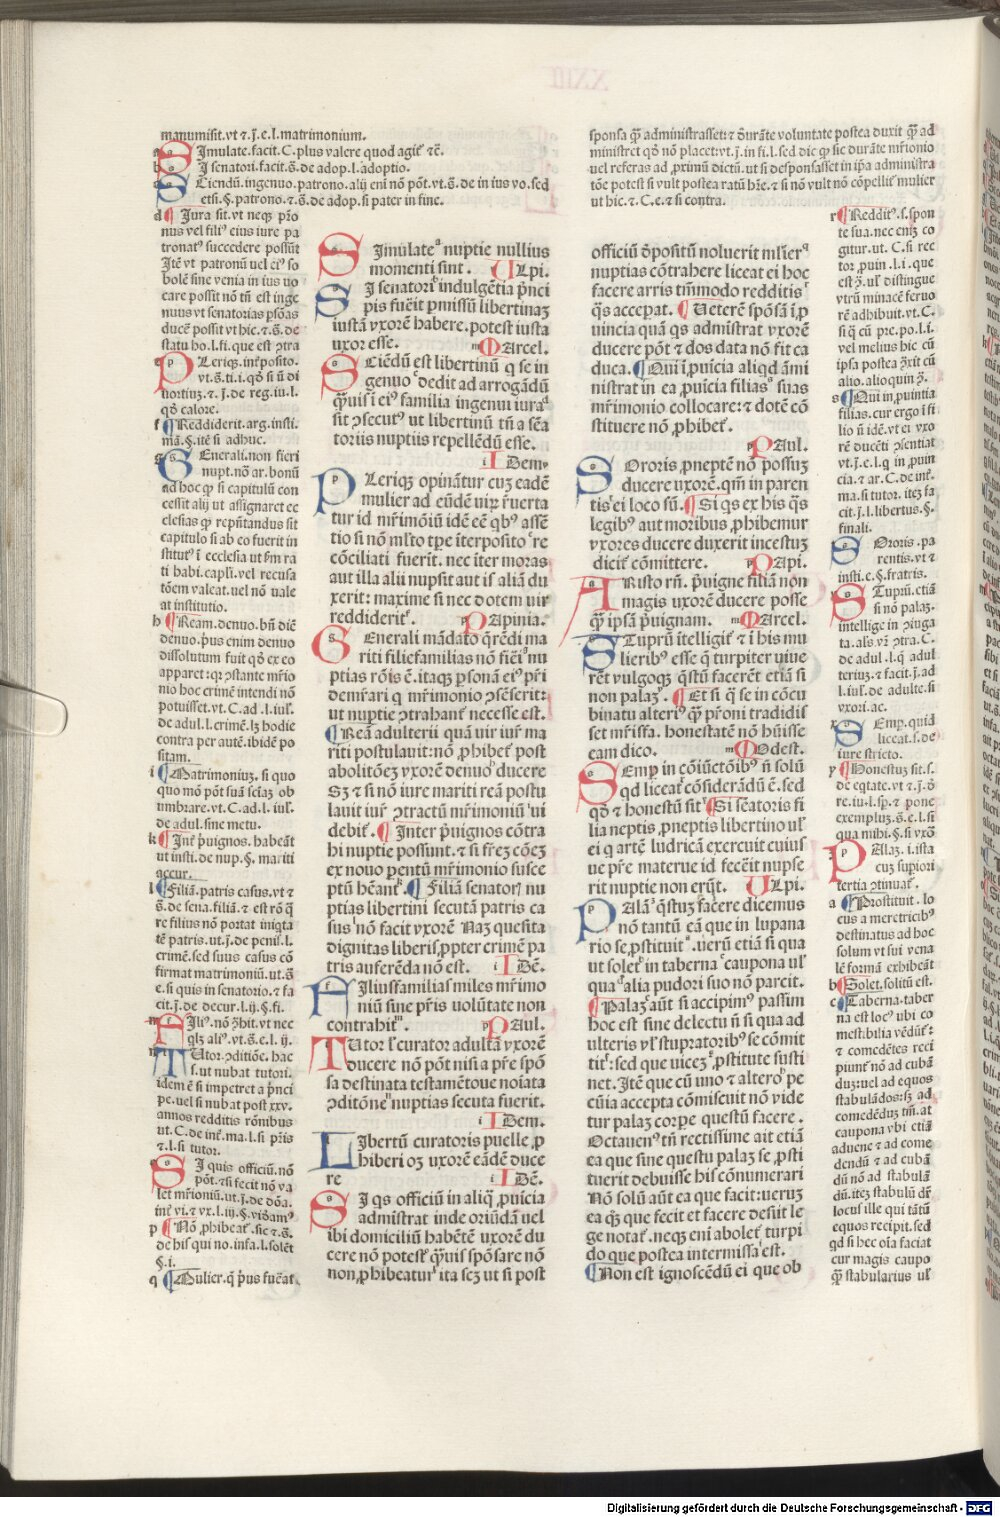 manumisit.vt ⁊.j̄.e.l.matrimonium.
Simulate.facit.C.plus valere quod agit̄ ⁊c̄.
Si senatori.facit.s̄.de adop.l.adoptio.
etsi.§.patrono.⁊.s̄.de adop.si pater in fine.
d Jura sit.vt neqꝫ p̄ro
nus vel filiꝰ eius iure pa
tronatꝰ succedere possūt
Jtē vt patronū uel eiꝰ so
bolē sine venia in ius uo
care possit nō tn̄ est inge
nuus vt senatorias ꝑsōas
ducē possit vt hic.⁊.s̄.de
statu ho.l.fi.que est ꝯtra
e Pleriqꝫ.int̄posito.
qd̄ calore.
f Reddiderit.arg.insti.
mā.§.itē si adhuc.
g Generali.non fieri
nupt.nō ar.bonū
ad hoc ꝙ si capitulū con
cessit alij ut assignaret ec
clesias ꝙ reputandus sit
capitulo si ab eo fuerit in
ti habi.capl̄i.vel recusa
tōem valeat.uel nō uale
at institutio.
h Ream.denuo.bn̄ diē
denuo.pᵘs enim denuo
dissolutum fuit qd̄ ex eo
nio hoc crimē intendi nō
potuisset.vt.C.ad .l.iul̄.
de adul.l.crimē.lꝫ hodie
contra per autē.ibidē po
sitam.
i Matrimoniuꝫ.si quo
quo mō pōt suā sciaꝫ ob
umbrare.vt.C.ad.l.iul̄.
de adul.sine metu.
k Jnt̄ p̄uignos.habeāt
ut insti.de nup.§.mariti
accur.
l Filiā.patris casus.vt ⁊
s̄.de sena.filiā.⁊ est rō q̄
re filius nō portat iniq̄ta
tē patris.ut.j̄.de penis.l.
crimē.sed suus casus cō
firmat matrimoniū.ut.s̄
e.si quis in senatorio.⁊ fa
cit.j̄.de decur.l.ij.§.fi.
m Filiꝰ.nō ꝯhit.vt nec
n Tutor.ꝯditiōe.hac
s.ut nubat tutori.
idem ē si impetret a p̄nci
pe.uel si nubat post xxv.
annos redditis rōnibus
ut.C.de int̄.ma.l.si p̄ris
⁊.l.si tutor.
o Si quis officiū.nō
pōt.⁊ si fecit nō va
let mr̄ioniū.ut.j̄.de dōa.
p Nō ꝓhibeat̄.sic ⁊.s̄.
de his qui no.infa.l.solēt
§.i.
q Mulier.q̄ pᵘs fuēat.
Simulate nuptie nullius
momenti sint. Ulpi.
Si senatori indulgētia p̄nci
pis fuēit ꝑmissū libertinaꝫ
iustā vxorē habere.potest iusta
uxor esse. Marcel.
Sciēdū est libertinū q̄ se in
genuo dedit ad arrogādū
q̄uis ī eiꝰ familia ingenui iura
sit ꝯsecutꝰ ut libertinū tn̄ a sēa
toriis nuptiis repellēdū esse.
Jdem
Pleriqꝫ opinātur cuꝫ eadē
mulier ad eūdē uirꝫ r̄uerta
tur id mr̄imōiū idē eē qbꝰ assē
tio si nō ml̄to tꝑe īterposito re
cōciliati fuerit.nec īter moras
aut illa alii nupsit aut is aliā du
xerit:maxime si nec dotem uir
reddiderit. Papinia.
Generali mādato q̄rēdi ma
riti filiefamilias nō fiēi nu
ptias rōis ē.itaqꝫ ꝑsonā eiꝰ pr̄i
demr̄ari q̄ mr̄imonio ꝯsēserit:
ut nuptie ꝯtrahant̄ necesse est.
Reā adulterii quā uir iur̄ ma
riti postulauit:nō ꝓhibet̄ post
abolitōeꝫ vxorē denuo ducere
Sꝫ ⁊ si nō iure mariti reā postu
lauit iur̄ ꝯtractū mr̄imoniū ui
debit̄. Jnter p̄uignos cōtra
hi nuptie possunt.⁊ si fr̄eꝫ cōeꝫ
ex nouo ꝑentū mr̄imonio susce
ptū hēant̄. Filiā senatorꝭ nu
ptias libertini secutā patris ca
sus nō facit vxorē Naꝫ quesita
dignitas liberis ꝓpter crimē pa
tris auferēda nō est. JDē.
Filiusfamilias miles mr̄imo
niū sine pr̄is volūtate non
contrahit̄. Paul.
Tutor l̄ curator adultā vxorē
ducere nō pōt nisi a pr̄e spō
sa destinata testamētoue noiata
ꝯditōne nuptias secuta fuerit.
Jdem.
Libertū curatoris puelle ꝓ
hiberi oꝫ uxorē eādē duce
re JDē.
Si qs officiū in aliq̄ ꝓuicia
admistrat inde oriūdā uel
ibi domiciliū habētē uxorē du
cere nō potest q̄uis spōsare nō
non ꝓhibeatur ita scꝫ ut si post
sponsa q̄ administrasset:⁊ durāte voluntate postea duxit q̄ ad
ministret qd̄ nō placet:vt.j̄.in fi.l.sed dic ꝙ sic durāte mr̄ionio
tōe potest si vult postea ratū hr̄e.⁊ si nō vult nō cōpellit̄ mulier
ut hic.⁊.C.e.⁊ si contra.
officiū dpositū noluerit ml̄ier
nuptias cōtrahere liceat ei hoc
facere arris tm̄modo redditis
q̄s accepat. Ueterē spōsā ī ꝓ
uincia quā qs admistrat vxorē
ducere pōt ⁊ dos data nō fit ca
duca. Qui ī ꝓuicia aliqd ā̄mi
nistrat in ea ꝓuicia filias suas
mr̄imonio collocare:⁊ dotē cō
stituere non ꝓhibet̄.
Paul.
Sororis ꝓneptē nō possuꝫ
ducere uxorē.qm̄ in paren
tis ei loco sū. Si qs ex his q̄s
legibꝰ aut moribus ꝓhibemur
vxores ducere duxerit incestuꝫ
dicit̄ cōmittere. Papi.
Aristo rn̄. p̄uigne filiā non
magis uxorē ducere posse
q̄ ipsā p̄uignam. Marcel.
Stuprū ītelligit̄ ⁊ ī his mu
lieribꝰ esse q̄ turpiter uiue
rēt vulgoqꝫ q̄stū facerēt etiā si
non palaꝫ. Et si q̄ se in cōcu
binatu alteriꝰ q̄ pr̄oni tradidis
set mr̄issa.honestatē nō hūisse
eam dico. Modest.
Semp̄ in cōiūctōibꝰ n̄ solū
qd liceat cōsiderādū ē.sed
qd̄ ⁊ honestū sit. Si sēatoris fi
lia neptis ꝓneptis libertino ul̄
ei q̄ artē ludricā exercuit cuius
ue pr̄e materue id fecēit nupse
rit nuptie non erūt. Ulpi.
Palā q̄stuꝫ facere dicemus
nō tantū eā que in lupana
rio se ꝓstituit .uerū etiā si qua
ut solet̄ in taberna caupona ul̄
qua alia pudori suo nō parcit.
Palaꝫ aūt si accipimꝰ passim
hoc est sine delectu n̄ si qua ad
ulteris vl̄ stupratoribꝰ se cōmit
tit:sed que uiceꝫ ꝓstitute susti
net.Jtē que cū uno ⁊ altero pe
cūia accepta cōmiscuit nō vide
tur palaꝫ corpe questū facere.
Octauenꝰ tn̄ rectissime ait etiā
ea que sine questu palaꝫ se ꝓsti
tuerit debuisse his cōnumerari
Nō solū aūt ea que facit:ueruꝫ
ea qꝫ que fecit et facere desiit le
ge notat̄.neqꝫ eni abolet̄ turpi
do que postea intermissa est.
Non est ignoscēdū ei que ob
r Redditꝰ.s.spon
te sua.nec eniꝫ co
gitur.ut.C.si rec
tor ꝓuin.l.i.que
est ꝯ.ul̄ distingue
vtrū minacē feruo
rē adhibuit.vt.C.
si q̄ cū pre.po.l.i.
vel melius hic cū
ipsa postea ꝯxit cū
alio.alioquin ꝯ.
s Qui in ꝓuintia
filias.cur ergo i si
lio ū idē.vt ei vxo
rē ducēti ꝯsentiat
vt.j̄.e.l.q̄ in ꝓuin
cia.⁊ ar.C.de int̄.
ma.si tutor. iteꝫ fa
cit.j̄.l.libertus.§.
finali.
Sororis .pa
rentis.vt ⁊
insti.e.§.fratris.
Stuprū.etiā
si nō palaꝫ.
intellige in ꝯiuga
ta.als vꝫ ꝯtra.C.
de adul .l.q̄ adul
teriuꝫ.⁊ facit.j̄.ad
l.iul̄.de adulte.si
vxori.ac.
x Semp̄.quid
liceat.s.de
iure stricto.
y Honestuꝫ sit.s.
de eq̄tate.vt ⁊.j̄.d̄
re.iu.l.sp̄.⁊ pone
exempluꝫ.s̄.e.l.si
qua mihi.§.si vxō.
z Pallaꝫ.i.ista
cuꝫ supiori
tertia ꝯtinuat̄.
a Prostituit.lo
cus a meretricibꝰ
destinatus ad hoc
solum vt sui vena
lē formā exhibeāt
b Solet.solitū est.
c Taberna.taber
na est locꝰ ubi co
mestibilia vēdūt̄:
⁊ comedētes reci
piunt̄ nō ad cubā
duꝫ:uel ad equos
stabulādos:sꝫ ad
comedēduꝫ tm̄.at
caupona vbi etiā
aduene ⁊ ad come
dendū ⁊ ad cubā
dū nō ad stabulā
dū.iteꝫ stabulū dr̄
locus ille qui tātū
equos recipit.sed
qd si hec oīa faciat
cur magis caupo
q̄ stabularius ul̄
Digitalisierung gefördert durch die Deutsche Forschungsgemeinschaft - DFG